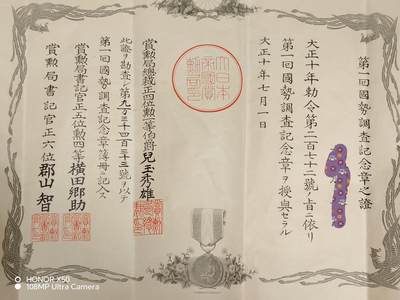 第一回國勢調査記念章之證
大正十年勅令第二百七十二號ノ旨ニ依リ
第一回國勢調査記念章ヲ授與セラル
大正十年七月一日
賞勲局總裁正四位勲一等伯爵兒玉秀雄
此證ヲ勘査シ第九万三千四百五十三號ヲ以テ
第一回國勢調査記念章簿冊ニ記入ス
賞勲局書記官正五位勲四等横田郷助
賞勲局書記官正六位郡山智
HONOR X50
108MP Ultra Camera